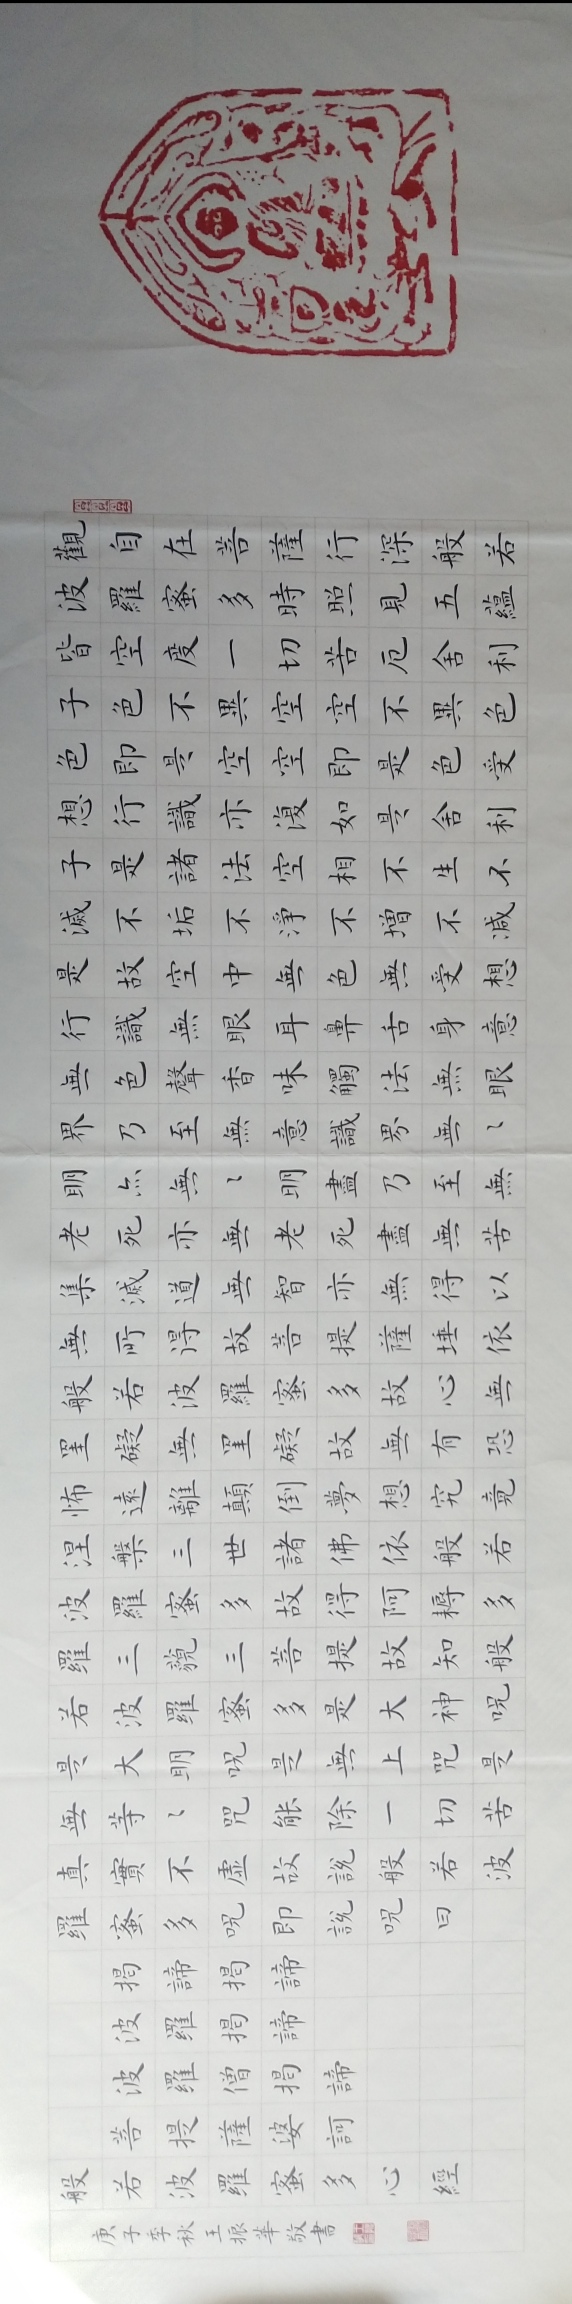 觀自在菩薩行深般若
波羅蜜多時照見五蘊
皆空度一切苦厄舍利
子色不異空空不異色
色即是空空即是色受
想行識亦復如是舍利
子是諸法空相不生不
滅不垢不淨不增不減
是故空中無色無受想
行識無眼耳鼻舌身意
無色聲香味觸法無眼
界乃至無意識界無〻
明亦無〻明盡乃至無
老死亦無老死盡無苦
集滅道無智亦無得以
無所得故菩提薩埵依
般若波羅蜜多故心無
罣礙無罣礙故無有恐
怖遠離顛倒夢想究竟
涅槃三世諸佛依般若
波羅蜜多故得阿耨多
羅三藐三菩提故知般
若波羅蜜多是大神呪
是大明呪是無上咒是
無等〻咒能除一切苦
真實不虛故說般若波
羅蜜多呪即說呪曰
揭諦揭諦
波羅揭諦
波羅僧揭諦
菩提薩婆訶
般若波羅蜜多心經
庚子季秋王振華敬書